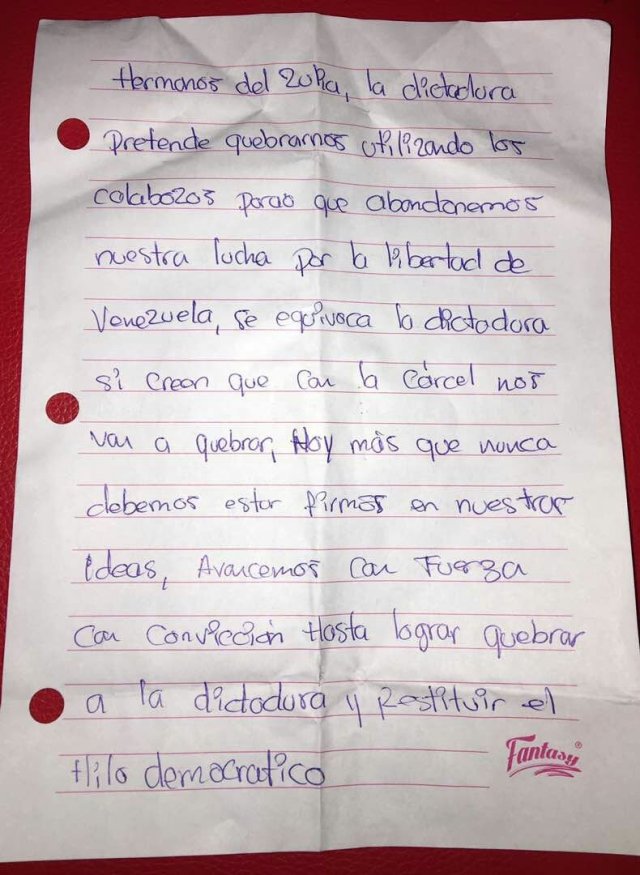 Hermanos del Zulia, la dictadura
Pretende quebrarnos utilizando los
calabozos para que abandonemos
nuestra lucha por la libertad de
Venezuela, se equivoca la dictadura
si creen que con la cárcel nos
van a quebrar, Hoy más que nunca
debemos estar firmes en nuestras
ideas, Avancemos con Fuerza
con convicción Hasta lograr quebrar
a la dictadura y Restituir el
Hilo democratico
Fantasy®